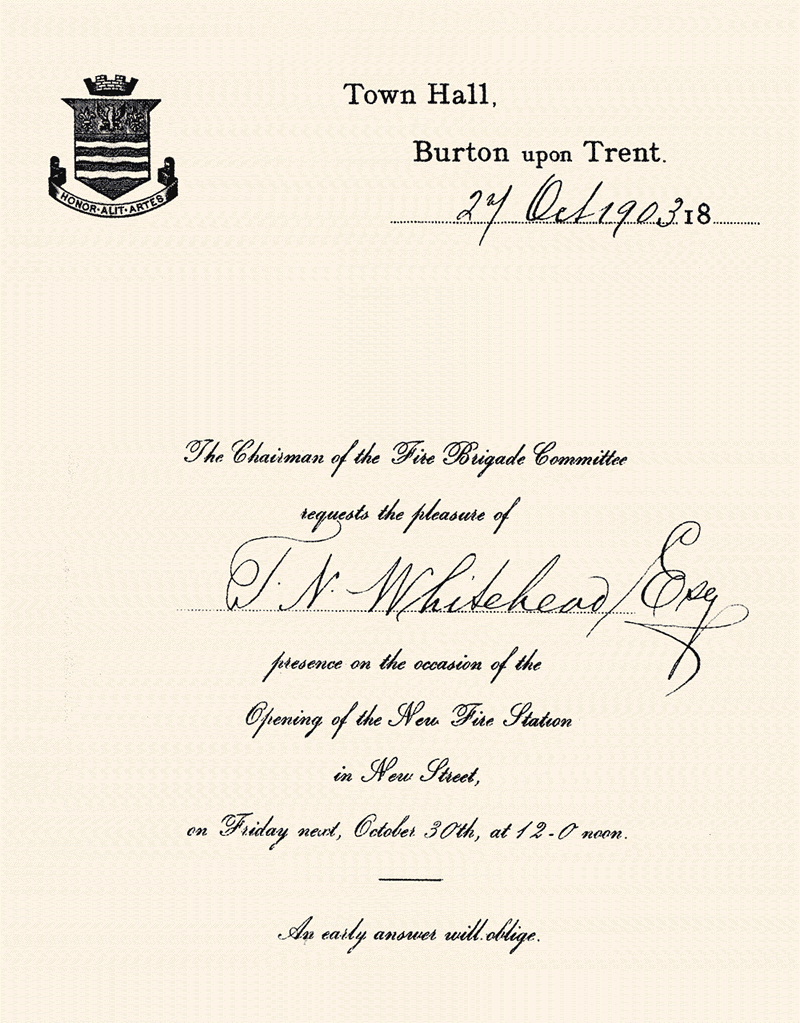 HONOR·ALIT·ARTES
Town Hall,
Burton upon Trent.
27 Oct 1903 18
The Chairman of the Fire Brigade Committee
requests the pleasure of
T. N. Whitehead / Esq
presence on the occasion of the
Opening of the New Fire Station
in New Street,
on Friday next, October 30th, at 12-0 noon.
An early answer will oblige.